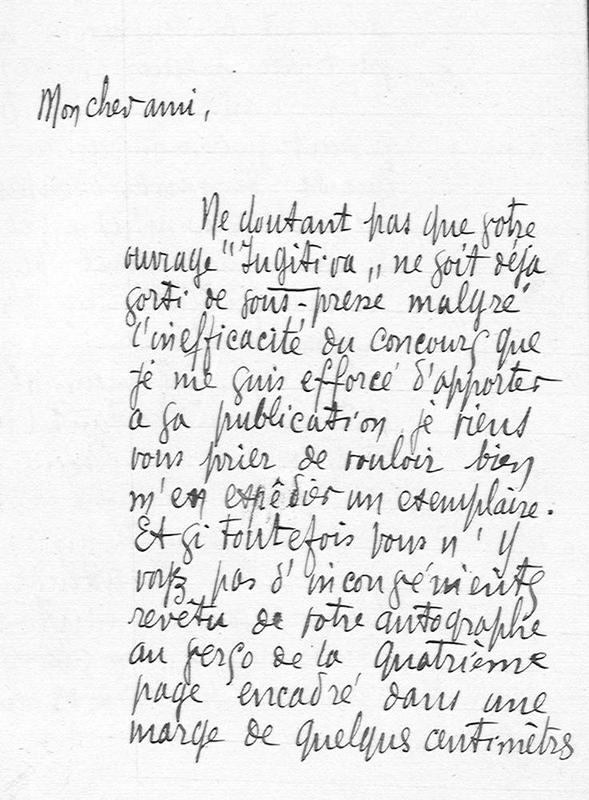 Mon cher ami,
Ne doutant pas que votre
ouvrage "Fugitiva„ ne soit déja
sorti de sous-presse malgré
l'inefficacité du concours que
je me suis efforcé d'apporter
a sa publication, je viens
vous prier de vouloir bien
m'en expêdier un exemplaire.
Et si toutefois vous n'y
voyez pas d'inconvénients
revêtu de votre autographe
au verso de la quatrième
page encadré dans une
marge de quelques centimètres